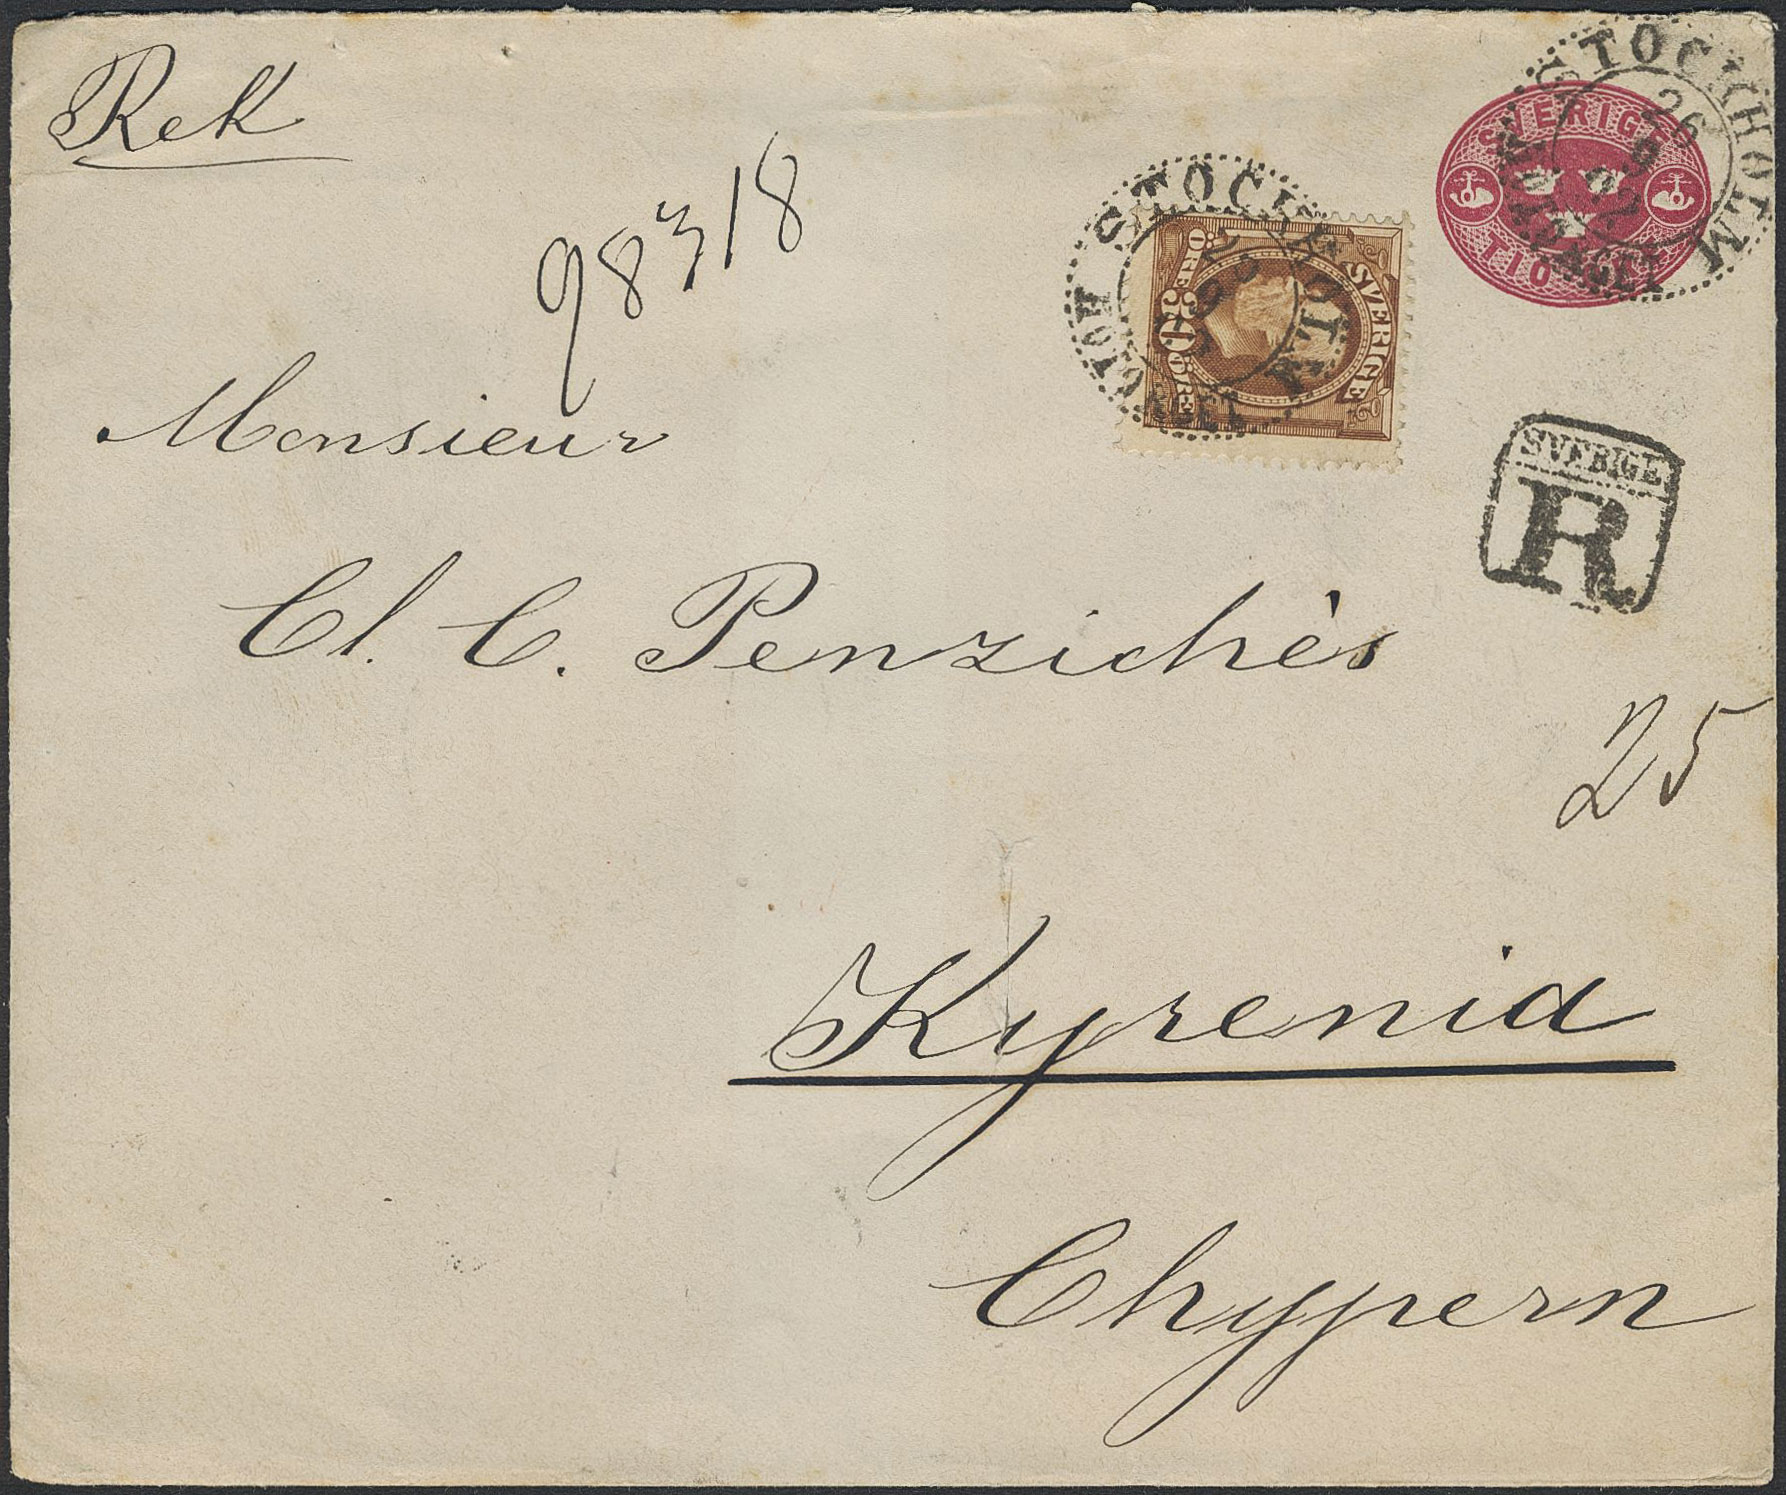 Rek
98318
STOCKHOLM
26
9
92
SVERIGE
TIO
STOCKHOLM
SVERIGE
30
ÖRE
ÖRE
SVERIGE
R
Monsieur
Cl. C. Penzichès
25
Kyrenia
Chypern